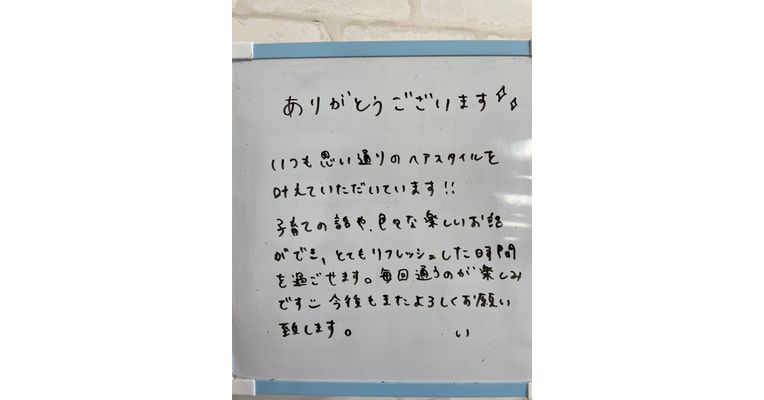 ありがとうございます✧✧
いつも思い通りのヘアスタイルを
叶えていただいています!!
子育ての話や、色々な楽しいお話
ができ、とてもリフレッシュした時間
を過ごせます。毎回通うのが楽しみ
です 今後もまたよろしくお願い
致します。 い